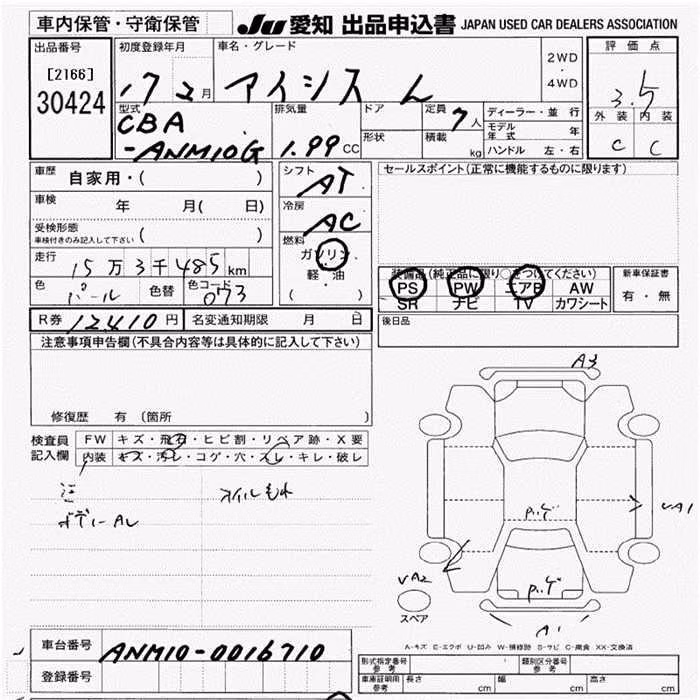 車内保管・守衛保管
JU 愛知 出品申込書 JAPAN USED CAR DEALERS ASSOCIATION
出品番号
[2166]
30424
初度登録年月
17 2月
車名・グレード
アイシス L
2WD
・
4WD
評価点
3.5
外装 内装
C C
型式
CBA
-ANM10G
排気量
1.99 CC
ドア
形状
定員
7人
積載
kg
ディーラー・並 行
モデル年式 年
ハンドル 左・右
車歴
自家用・( )
車検
年 月( 日)
受検形態
車検付きのみ記入して下さい ( )
走行
15万3千485km
色
パール
色替
色コード
073
シフト
AT
冷房
AC
燃料
ガソリン
軽・油
( )
セールスポイント(正常に機能するものに限ります)
装備品(純正品に限り○をつけてください)
PS PW エアB AW
SR ナビ TV カワシート
新車保証書
有・無
R券 12,410円
名変通知期限 月 日
後日品
注意事項申告欄(不具合内容等は具体的に記入して下さい)
修復歴 有(箇所 )
検査員
記入欄
FW キズ・飛石・ヒビ割・リペア跡・X要
内装 キズ・汚レ・コゲ・穴・スレ・キレ・破レ
オイルもれ
ボデーAL
A3
P.ゲ
A1
A2
P.ゲ
スペア
A1
A-キズ E-エクボ U-凹み W-補修跡 S-サビ C-腐食 XX-交換済
車台番号
ANM10-0016710
登録番号
形式指定番号
参考
類別区分番号
参考
車庫証明用
参考
長さ cm
幅 cm
高さ cm